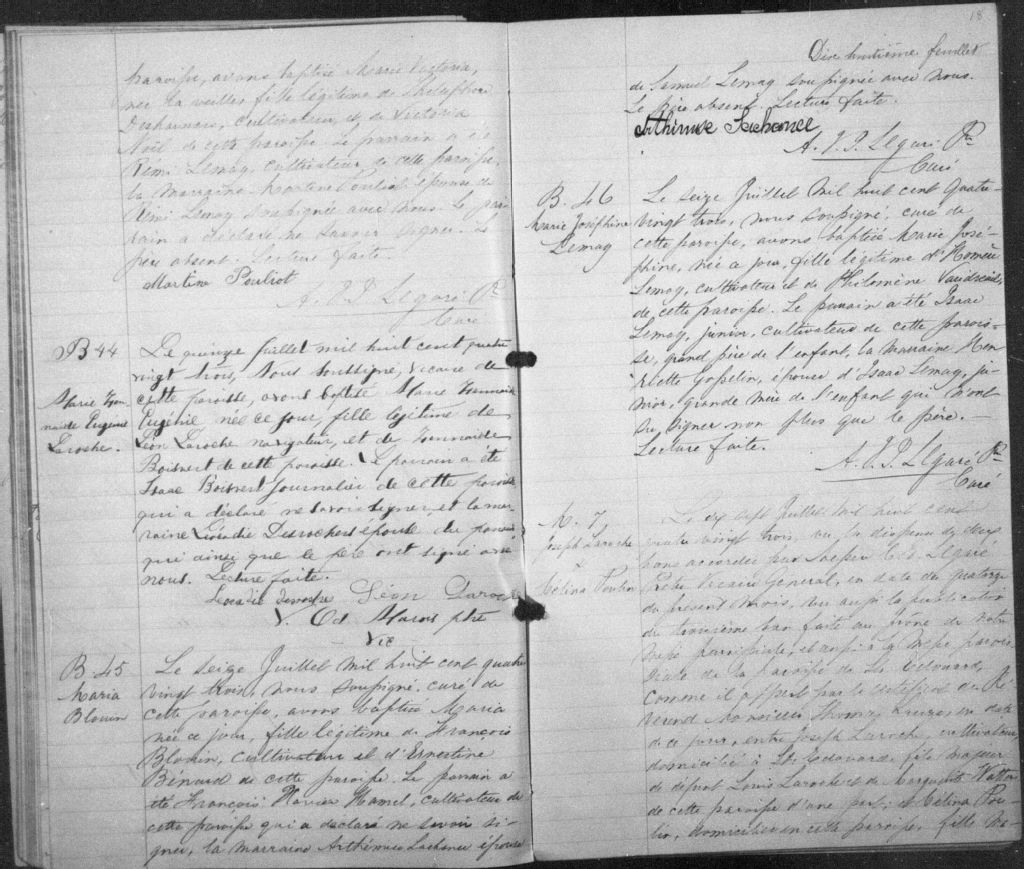 paroisse, avons baptisé Marie Victoria,
née la veille, fille légitime de Thélesphore
Desharnais, cultivateur et de Victoria
Noël de cette paroisse. Le parrain a été
Rémi Lemay, cultivateur de cette paroisse,
la marraine Martine Pouliot épouse de
Rémi Lemay soussignée avec nous. Le par-
rain a déclaré ne savoir signer. Le
père absent. Lecture faite.
Martine Pouliot
A. J. D. Légaré Ptre
Curé
B 44
Marie Zoun-
naïde Eugénie
Laroche.
Le quinze Juillet mil huit cent quatre
vingt trois, Nous soussigné, vicaire de
cette paroisse, avons baptisé Marie
Eugénie née ce jour, fille légitime de
Léon Laroche navigateur, et de
Boisvert de cette paroisse. Le parrain a été
Isaac Boisvert journalier de cette paroisse
qui a déclaré ne savoir signer, et la mar-
raine Léocadie Desrochers épouse du parrain
qui ainsi que le père ont signé avec
nous. Lecture faite.
Léon Laroche
V. Od Marois ptre
Vic
B. 45
Maria
Blouin
Le seize Juillet mil huit cent quatre
vingt trois, nous soupigné, curé de
cette paroisse, avons baptisé Maria
née ce jour, fille légitime de François
Blouin, cultivateur et d'Ernestine
Bénard de cette paroisse. Le parrain a
été François Xavier Hamel, cultivateur de
cette paroisse qui a déclaré ne savoir si-
gner, la marraine Arthémise Lachance épouse
18
Dix huitième feuillet
de Samuel Lemay soussignée avec nous.
Le père absent. Lecture faite.
Arthémise Lachance
A. J. D. Légaré Ptre
Curé
B. 46
Marie Joséphine
Lemay
Le seize Juillet mil huit cent quatre-
vingt trois, nous soussigné, curé de
cette paroisse, avons baptisé Marie José-
phine, née ce jour, fille légitime d'Homère
Lemay, cultivateur et de Philomène Vaudreuil,
de cette paroisse. Le parrain a été Isaac
Lemay, junior, cultivateur de cette parois-
se, grand père de l'enfant, la marraine Hen-
riette Gosselin, épouse d'Isaac Lemay, ju-
nior, grande mère de l'enfant qui n'ont
su signer non plus que le père.
Lecture faite.
A. J. D. Légaré Ptre
Curé
M. 7
Joseph Laroche
&
Célina Poulin
Le dix sept Juillet mil huit cent
quatre vingt trois, vu la dispense de deux
bans accordée par Légaré
Ptre Vicaire Général, en date du quatorze
du présent mois, vu aussi la publication
du troisième ban faite au prône de notre
messe paroissiale, et aussi à la messe parois-
siale de la paroisse de St. Edouard,
comme il appert par le certificat du Ré-
vérend Monsieur en date
de ce jour, entre Joseph Laroche, cultivateur
domicilié à St. Edouard, fils majeur
de défunt Louis Laroche et de Marguerite
de cette paroisse d'une part; et Célina Pou-
lin, domiciliée en cette paroisse, fille